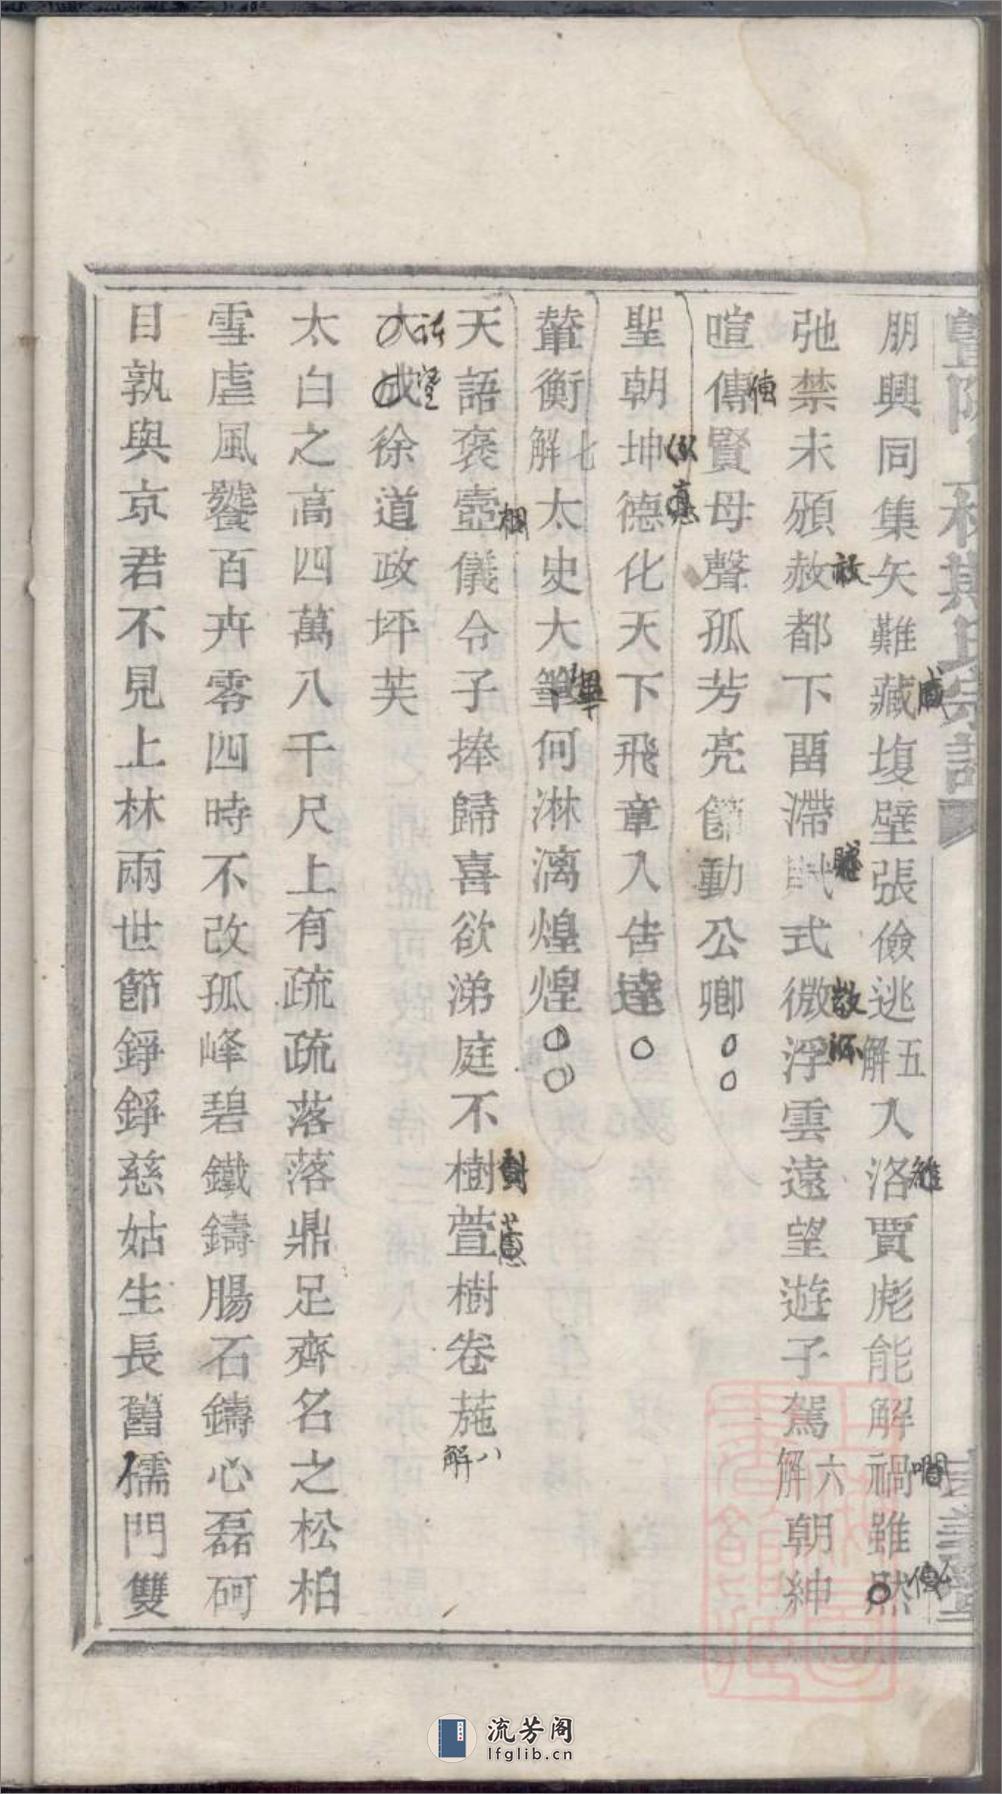 朋興同集矢難藏複壁張儉逃五解入洛賈彪能解禍雖然
弛禁未頒赦都下畱滯賦式微浮雲遠望遊子駕六解朝紳
喧傳賢母聲孤芳亮節動公卿
聖朝坤德化天下飛章入告達
輦衡七解太史大筆何淋漓煌煌
天語褒壼儀令子捧歸喜欲涕庭不樹萱樹卷葹八解
大成徐道政坪芙
太白之高四萬八千尺上有疏疏落落鼎足齊名之松柏
雪虐風饕百卉零四時不改孤峰碧鐵鑄腸石鑄心磊砢
目孰與京君不見上林兩世節錚錚慈姑生長舊儒門雙
流芳阁
lfglib.cn